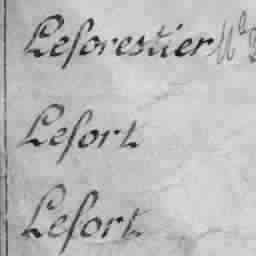 Leforestier
Lefort
Lefort